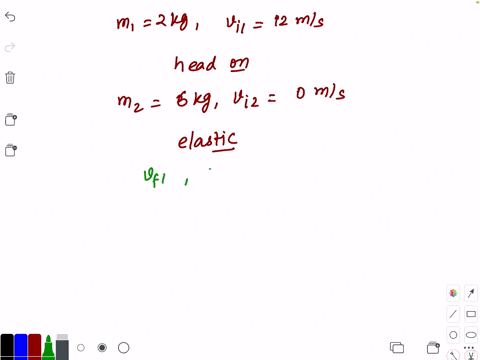 m₁ = 2 kg, v_i1 = 12 m/s
head on
m₂ = 6 kg, v_i2 = 0 m/s
elastic
v_f1 ,